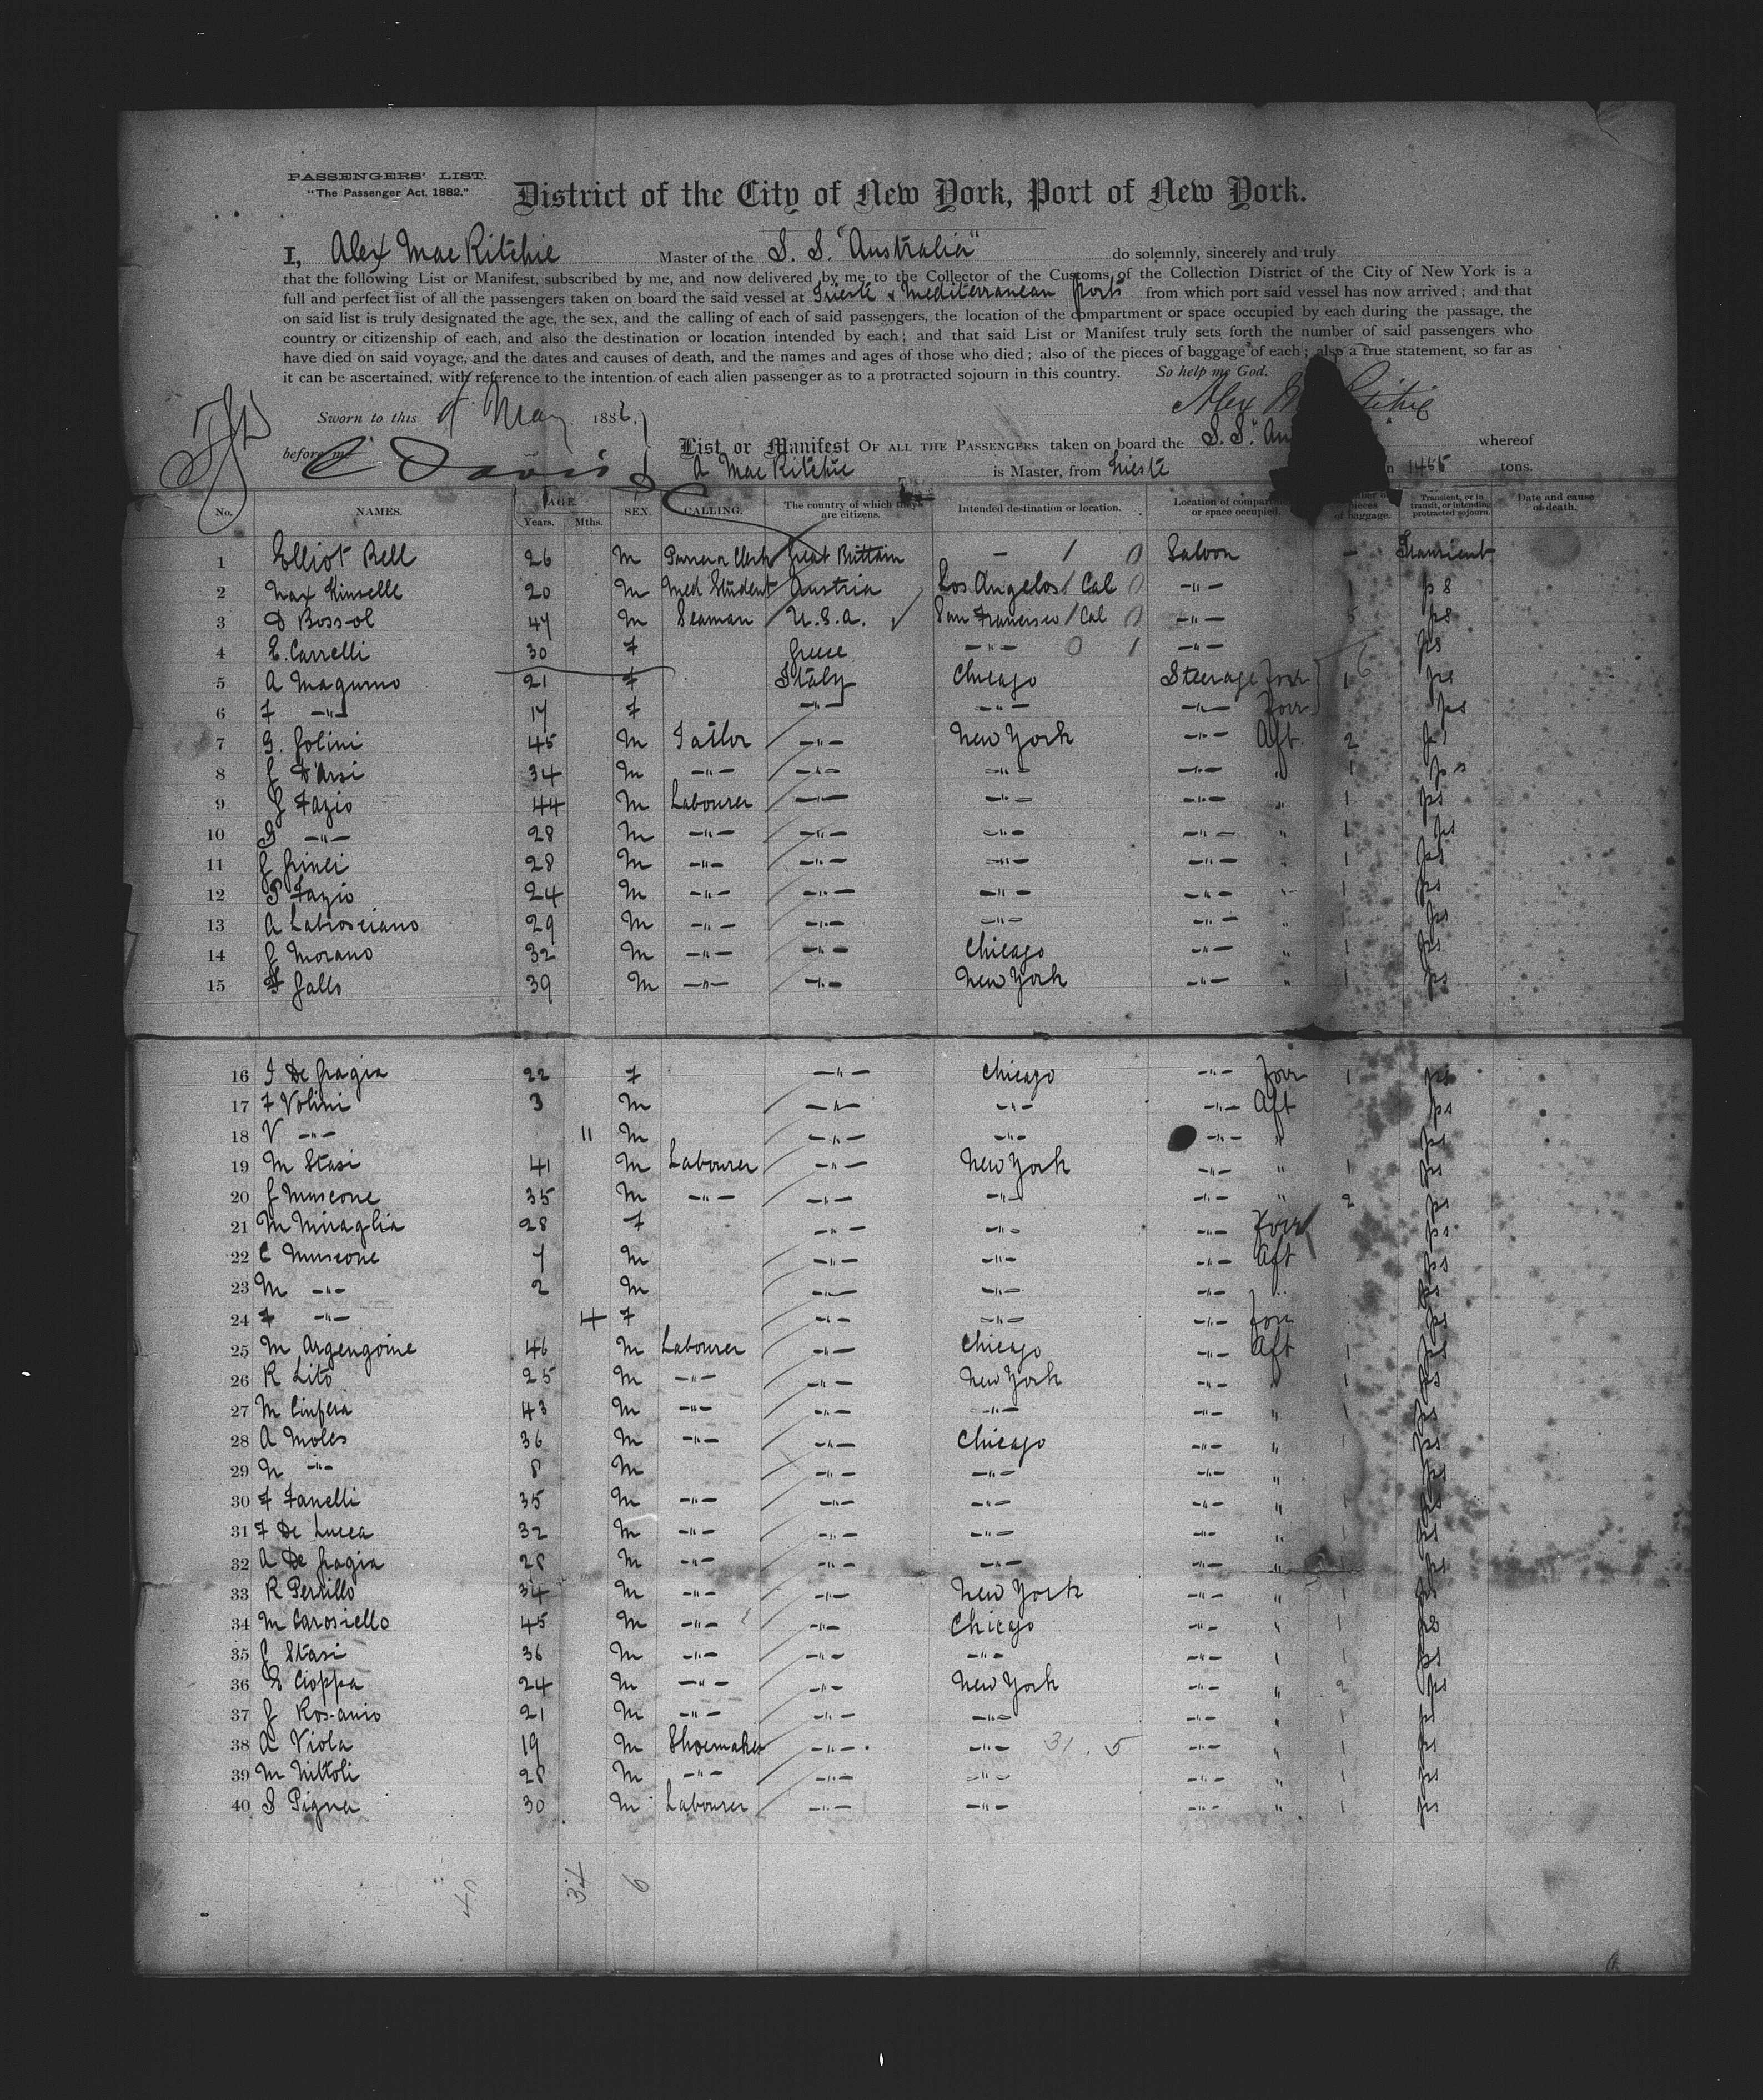 PASSENGERS' LIST.
"The Passenger Act, 1882."
District of the City of New York, Port of New York.
I, Alex MacRitchie Master of the S. S. "Australia" do solemnly, sincerely and truly
that the following List or Manifest, subscribed by me, and now delivered by me to the Collector of the Customs of the Collection District of the City of New York is a
full and perfect list of all the passengers taken on board the said vessel at Trieste & Mediterranean ports from which port said vessel has now arrived; and that
on said list is truly designated the age, the sex, and the calling of each of said passengers, the location of the compartment or space occupied by each during the passage, the
country or citizenship of each, and also the destination or location intended by each; and that said List or Manifest truly sets forth the number of said passengers who
have died on said voyage, and the dates and causes of death, and the names and ages of those who died; also of the pieces of baggage of each; also a true statement, so far as
it can be ascertained, with reference to the intention of each alien passenger as to a protracted sojourn in this country. So help me God.
Alex
Sworn to this May 1886.
before me C Davis
List or Manifest OF ALL THE PASSENGERS taken on board the S. S. whereof
A MacRitchie is Master, from Trieste tons.
No. NAMES. AGE. Years. Mths. SEX. CALLING. The country of which they are citizens. Intended destination or location. Location of compartment or space occupied. pieces of baggage. Transient, or in transit, or intending protracted sojourn. Date and cause of death.
1 Elliot Bell 26 M Great Brittain — 1 0 Saloon — Transient
2 Max Kinselle 20 M Med Student Austria Los Angelos / Cal 0 -"- 1 ps
3 D Bossol 47 M Seaman U.S.A. San Francisco / Cal 0 -"- 5 ps
4 E. Carrelli 30 F Greece -"- 0 1 -"- ps
5 A Magurno 21 F Italy Chicago Steerage Forr 1 ps
6 F -"- 17 F -"- -"- -"- Forr ps
7 G. Golini 45 M Tailor -"- New York -"- Aft. 2 ps
8 G D'Arsi 34 M -"- -"- -"- -"- " 1 ps
9 G Fazio 44 M Labourer -"- -"- -"- " 1 ps
10 G -"- 28 M -"- -"- -"- -"- " 1 ps
11 G Grinei 28 M -"- -"- -"- -"- " 1 ps
12 P Fazio 24 M -"- -"- -"- -"- " 1 ps
13 A Labrosciano 29 M -"- -"- -"- -"- " 1 ps
14 G Morano 32 M -"- -"- Chicago -"- " 1 ps
15 F Gallo 39 M -"- -"- New York -"- " 1 ps
16 I De Gragia 22 F -"- Chicago -"- Forr 1 ps
17 F Volini 3 M -"- -"- -"- Aft ps
18 V -"- 11 M -"- -"- -"- " ps
19 M Stasi 41 M Labourer -"- New York -"- " 1 ps
20 G Muscone 35 M -"- -"- -"- -"- " 2 ps
21 M Miraglia 28 F -"- -"- -"- Forr ps
22 C Muscone 7 M -"- -"- -"- Aft ps
23 M -"- 2 M -"- -"- -"- " ps
24 F -"- 4 F -"- -"- -"- Forr ps
25 M Argengoine 46 M Labourer -"- Chicago -"- Aft 1 ps
26 R Lito 25 M -"- -"- New York -"- " 1 ps
27 M Cinfera 43 M -"- -"- -"- -"- " 1 ps
28 A Moles 36 M -"- -"- Chicago -"- " 1 ps
29 N -"- 8 M -"- -"- -"- " ps
30 F Fanelli 35 M -"- -"- -"- -"- " 1 ps
31 F De Lucca 32 M -"- -"- -"- -"- " 1 ps
32 A De Gragia 28 M -"- -"- -"- -"- " 1 ps
33 R Perrillo 34 M -"- -"- New York -"- " 1 ps
34 M Carosiello 45 M -"- -"- Chicago -"- " 1 ps
35 G Stasi 36 M -"- -"- -"- -"- " 1 ps
36 E Cioppa 24 M -"- -"- New York -"- " 2 ps
37 G Rosanio 21 M -"- -"- -"- -"- " 1 ps
38 A Viola 19 M Shoemaker -"- -"- 31. 5 -"- " 1 ps
39 M Nittoli 28 M -"- -"- -"- -"- " 1 ps
40 S Pigna 30 M Labourer -"- -"- -"- " 1 ps
40 34 6